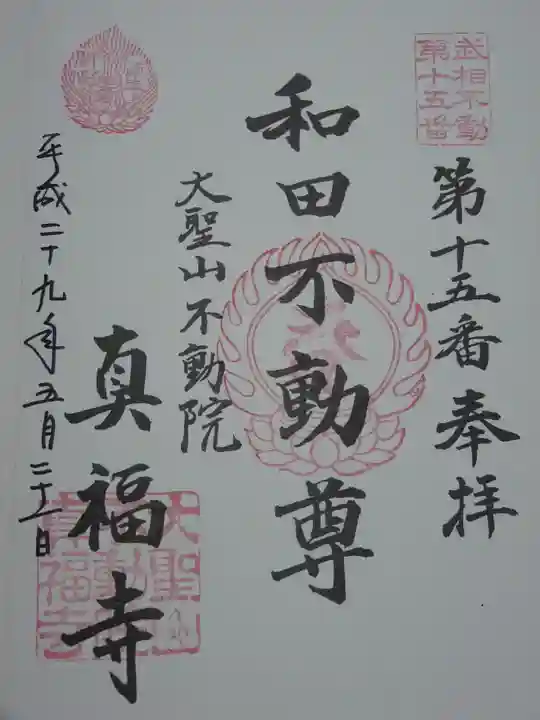 武相不動
第十五番
第十五番奉拝
和田不動尊
大聖山不動院
真福寺
平成二十九年五月二十一日